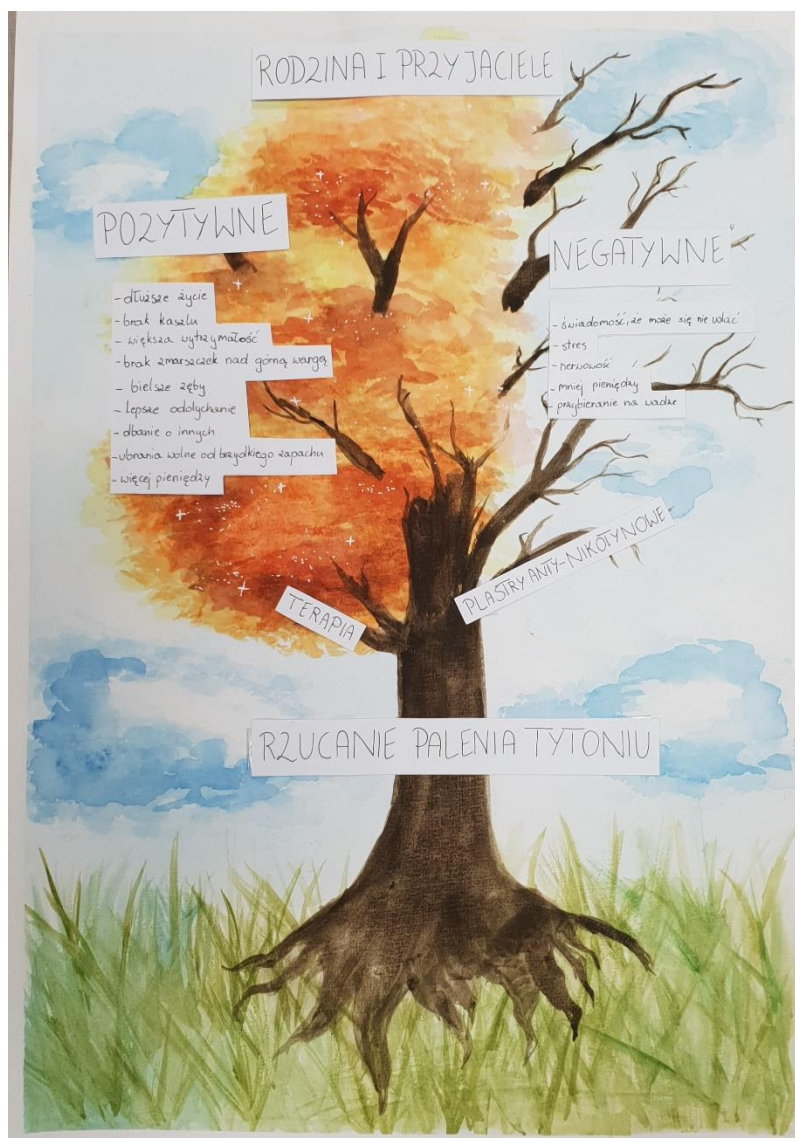 RODZINA I PRZYJACIELE
POZYTYWNE
- dłuższe życie
- brak kaszlu
- większa wytrzymałość
- brak zmarszczek nad górną wargą
- bielsze zęby
- lepsze oddychanie
- dbanie o innych
- ubrania wolne od brzydkiego zapachu
- więcej pieniędzy
NEGATYWNE
- świadomość, że może się nie udać
- stres
- nerwowość
- mniej pieniędzy
- przybieranie na wadze
TERAPIA
PLASTRY ANTY-NIKOTYNOWE
RZUCANIE PALENIA TYTONIU